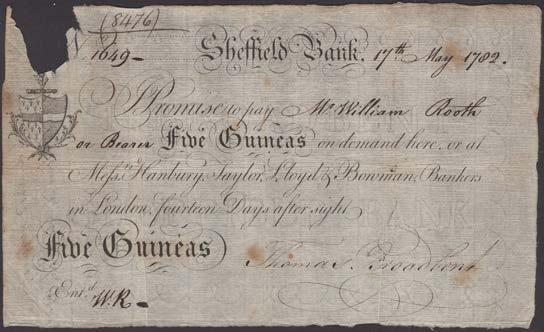 (8476)
1649 Sheffield Bank. 17th May 1782.
I Promise to pay Mr. William Rooth
or Bearer Five Guineas on demand here, or at
Messrs. Hanbury, Taylor, Lloyd & Bowman, Bankers
in London, fourteen Days after sight
Five Guineas Thomas. Broadbent
Entd. W.R